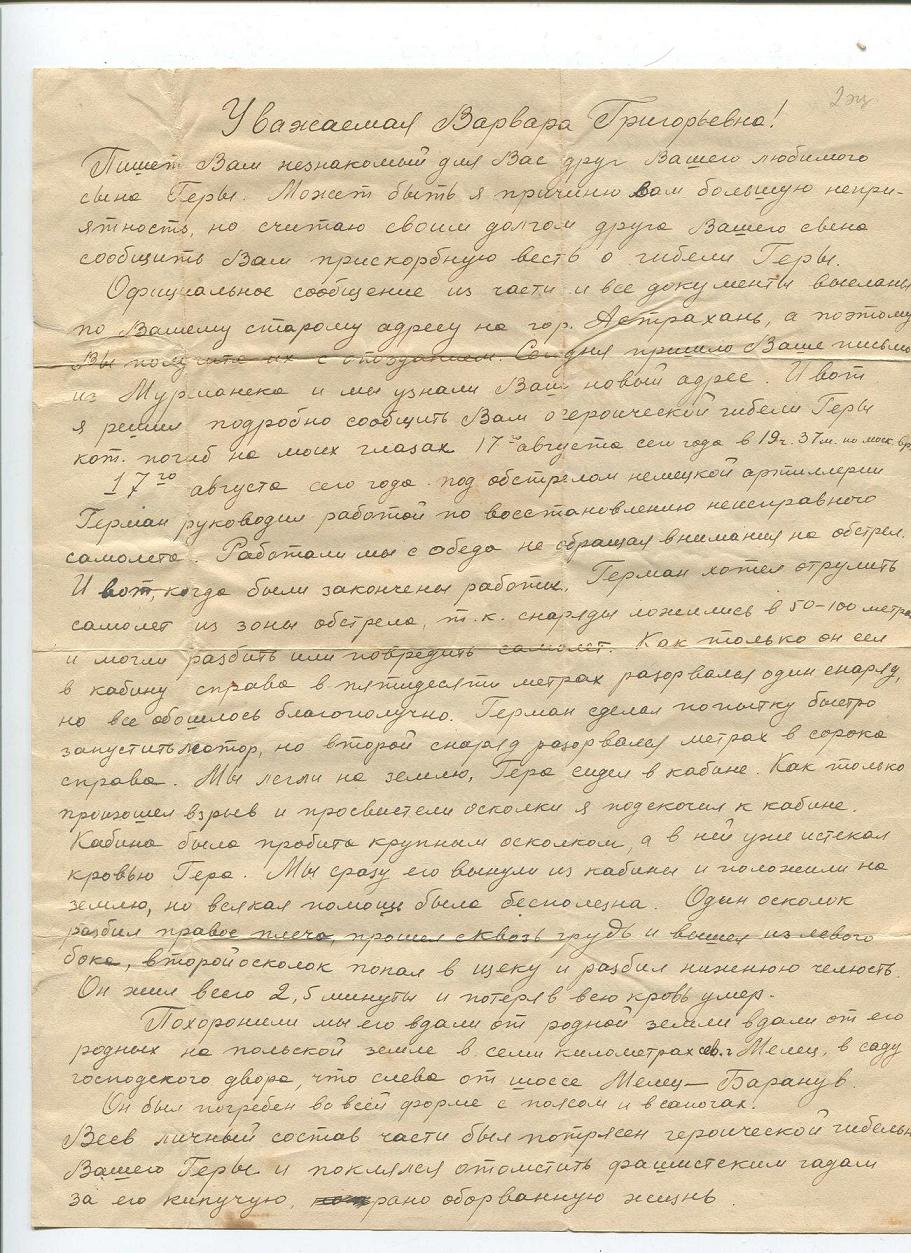 2 экз
Уважаемая Варвара Григорьевна!
Пишет Вам незнакомый для Вас друг Вашего любимого
сына Геры. Может быть я причиню Вам большую непри-
ятность, но считаю своим долгом друга Вашего сына
сообщить Вам прискорбную весть о гибели Геры.
Официальное сообщение из части и все документы высланы
по Вашему старому адресу на гор. Астрахань, а поэтому
Вы получите их с опозданием. Сегодня пришло Ваше письмо
из Мурманска и мы узнали Ваш новый адрес. И вот
я решил подробно сообщить Вам о героической гибели Геры
кот. погиб на моих глазах 17го августа сего года в 19г. 37м. по моск. вр.
17го августа сего года под обстрелом немецкой артиллерии
Герман руководил работой по восстановлению неисправного
самолета. Работали мы с обеда не обращая внимания на обстрел.
И вот, когда были закончены работы, Герман хотел отрулить
самолет из зоны обстрела, т.к. снаряды ложились в 50-100 метрах
и могли разбить или повредить самолет. Как только он сел
в кабину справа в пятидесяти метрах разорвался один снаряд,
но все обошлось благополучно. Герман сделал попытку быстро
запустить мотор, но второй снаряд разорвался метрах в сорока
справа. Мы легли на землю, Гера сидел в кабине. Как только
произошел взрыв и просвистели осколки я подскочил к кабине.
Кабина была пробита крупным осколком, а в ней уже истекал
кровью Гера. Мы сразу его вынули из кабины и положили на
землю, но всякая помощь была бесполезна. Один осколок
разбил правое плечо, прошел сквозь грудь и вышел из левого
бока, второй осколок попал в щеку и разбил нижнюю челюсть.
Он жил всего 2,5 минуты и потеряв всю кровь умер.
Похоронили мы его вдали от родной земли вдали от его
родных на польской земле в семи километрах сев. г Мелец, в саду
господского двора, что слева от шоссе Мелец — Баранув.
Он был погребен во всей форме с поясом и в сапогах.
Весь личный состав части был потрясен героической гибелью
Вашего Геры и поклялся отомстить фашистским гадам
за его кипучую, рано оборванную жизнь